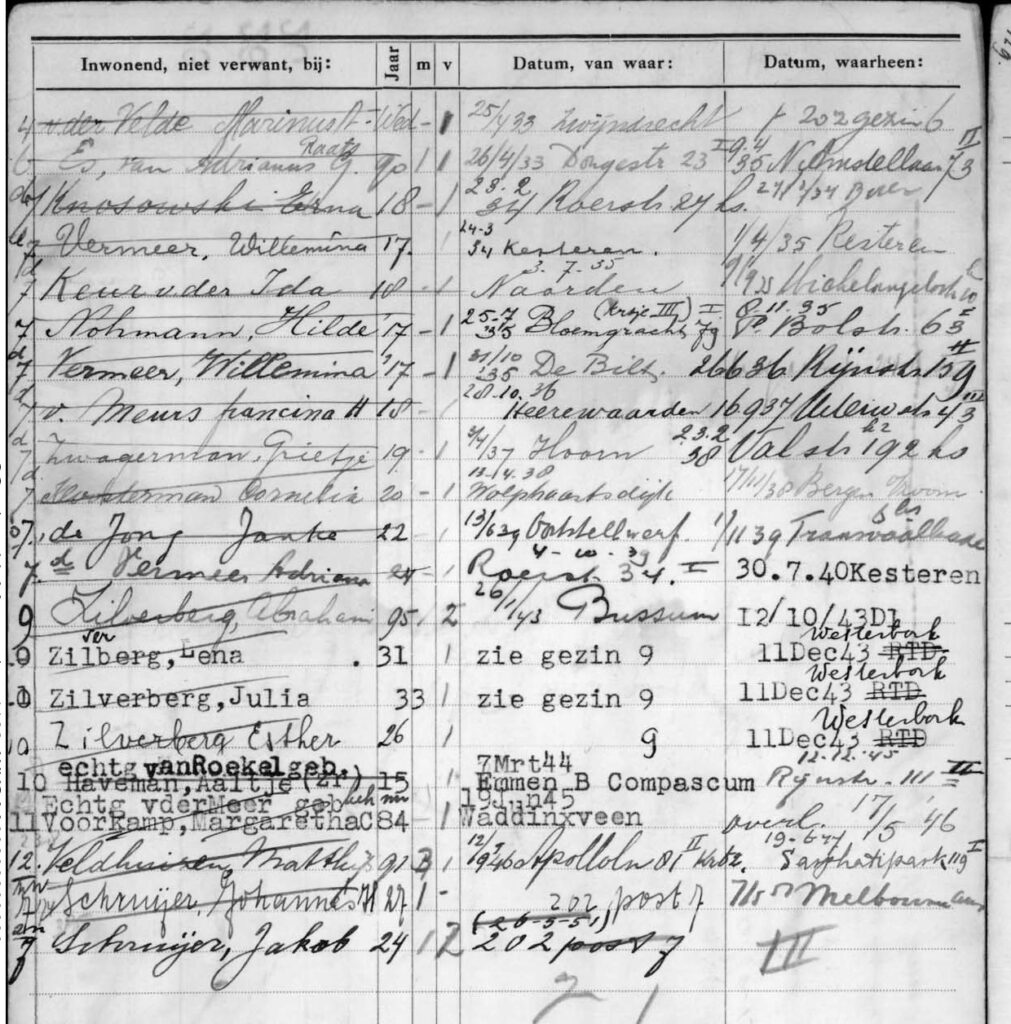 Inwonend, niet verwant, bij: Jaar m v Datum, van waar: Datum, waarheen:
4 v.der Velde Marinus - Wed - 1 25/4 33 Zwijndrecht 202 gezin 6
6 Es, van Adrianus G. 90 1 1 26/4/33 Dongestr 23 I 9.4/35 N. Amstellaan 73 II
7 Knosowski Erna 18 - 1 23.2 34 Roerstr 27 hs. 27/ /34
7 Vermeer, Willemina 17. 1 24-3 34 Kesteren. 1/4/35 Kesteren
7 Keur v.der Ida 18 - 1 3.7.35 Naarden Michelangelostr
7 Nohmann, Hilde 17 - 1 25-7 35 Bloemgracht 79 I 8.11.35 P. Bolstr. 63 I
d 7 Vermeer, Willemina '17 - 1 31/10 '35 De Bilt. 26636 Rijnstr 159 II
7 v. Meurs francina H 18 - 1 28.10.36 Heerewaarden 16937 43 III
d 7 Zwagerman, Grietje 19 - 1 /4/37 Hoorn 23.2 38 Valstr 192 hs
d 7 Cornelia 20 - 1 13.4.38 Wolphaartsdijk 17/11/38 Bergen
7. de Jong Janke 22 - 1 13/6 39 1139 Transvaalkade
7. d Vermeer Adriana 24 - 1 4-10-39 Roerst. 34. I 30.7.40Kesteren
9 Zilverberg, Abraham 95 1 2 26/1/43 Bussum 12/10/43D1
0 Zilberg, Lena ver . 31 1 zie gezin 9 11Dec43 RTD. Westerbork
0 Zilverberg,Julia 33 1 zie gezin 9 11Dec43 RTD Westerbork
10 Zilverberg Esther 26 1 9 11Dec43 RTD Westerbork
echtg vanRoekelgeb. 7Mrt44 12.12.'45
10 Haveman,Aaltje (Zr) 15 1 Emmen B Compascum Rijnstr. III II
Echtg vderMeer geb 19Jun45
11 Voorkamp,MargarethaC 84 - 1 Waddinxveen overl. 17/5 '46
12. Veldhuizen, Matthijs 91 3 1 12/ 1946 Apolloln 81 II 19-6-47 Sarphatipark 119 I
7 Schruijer, Johannes H 27 1 - 202, post 7 Melbourne
(26-5-51)
7 Schruijer, Jakob 24 1 2 202 post 7 III